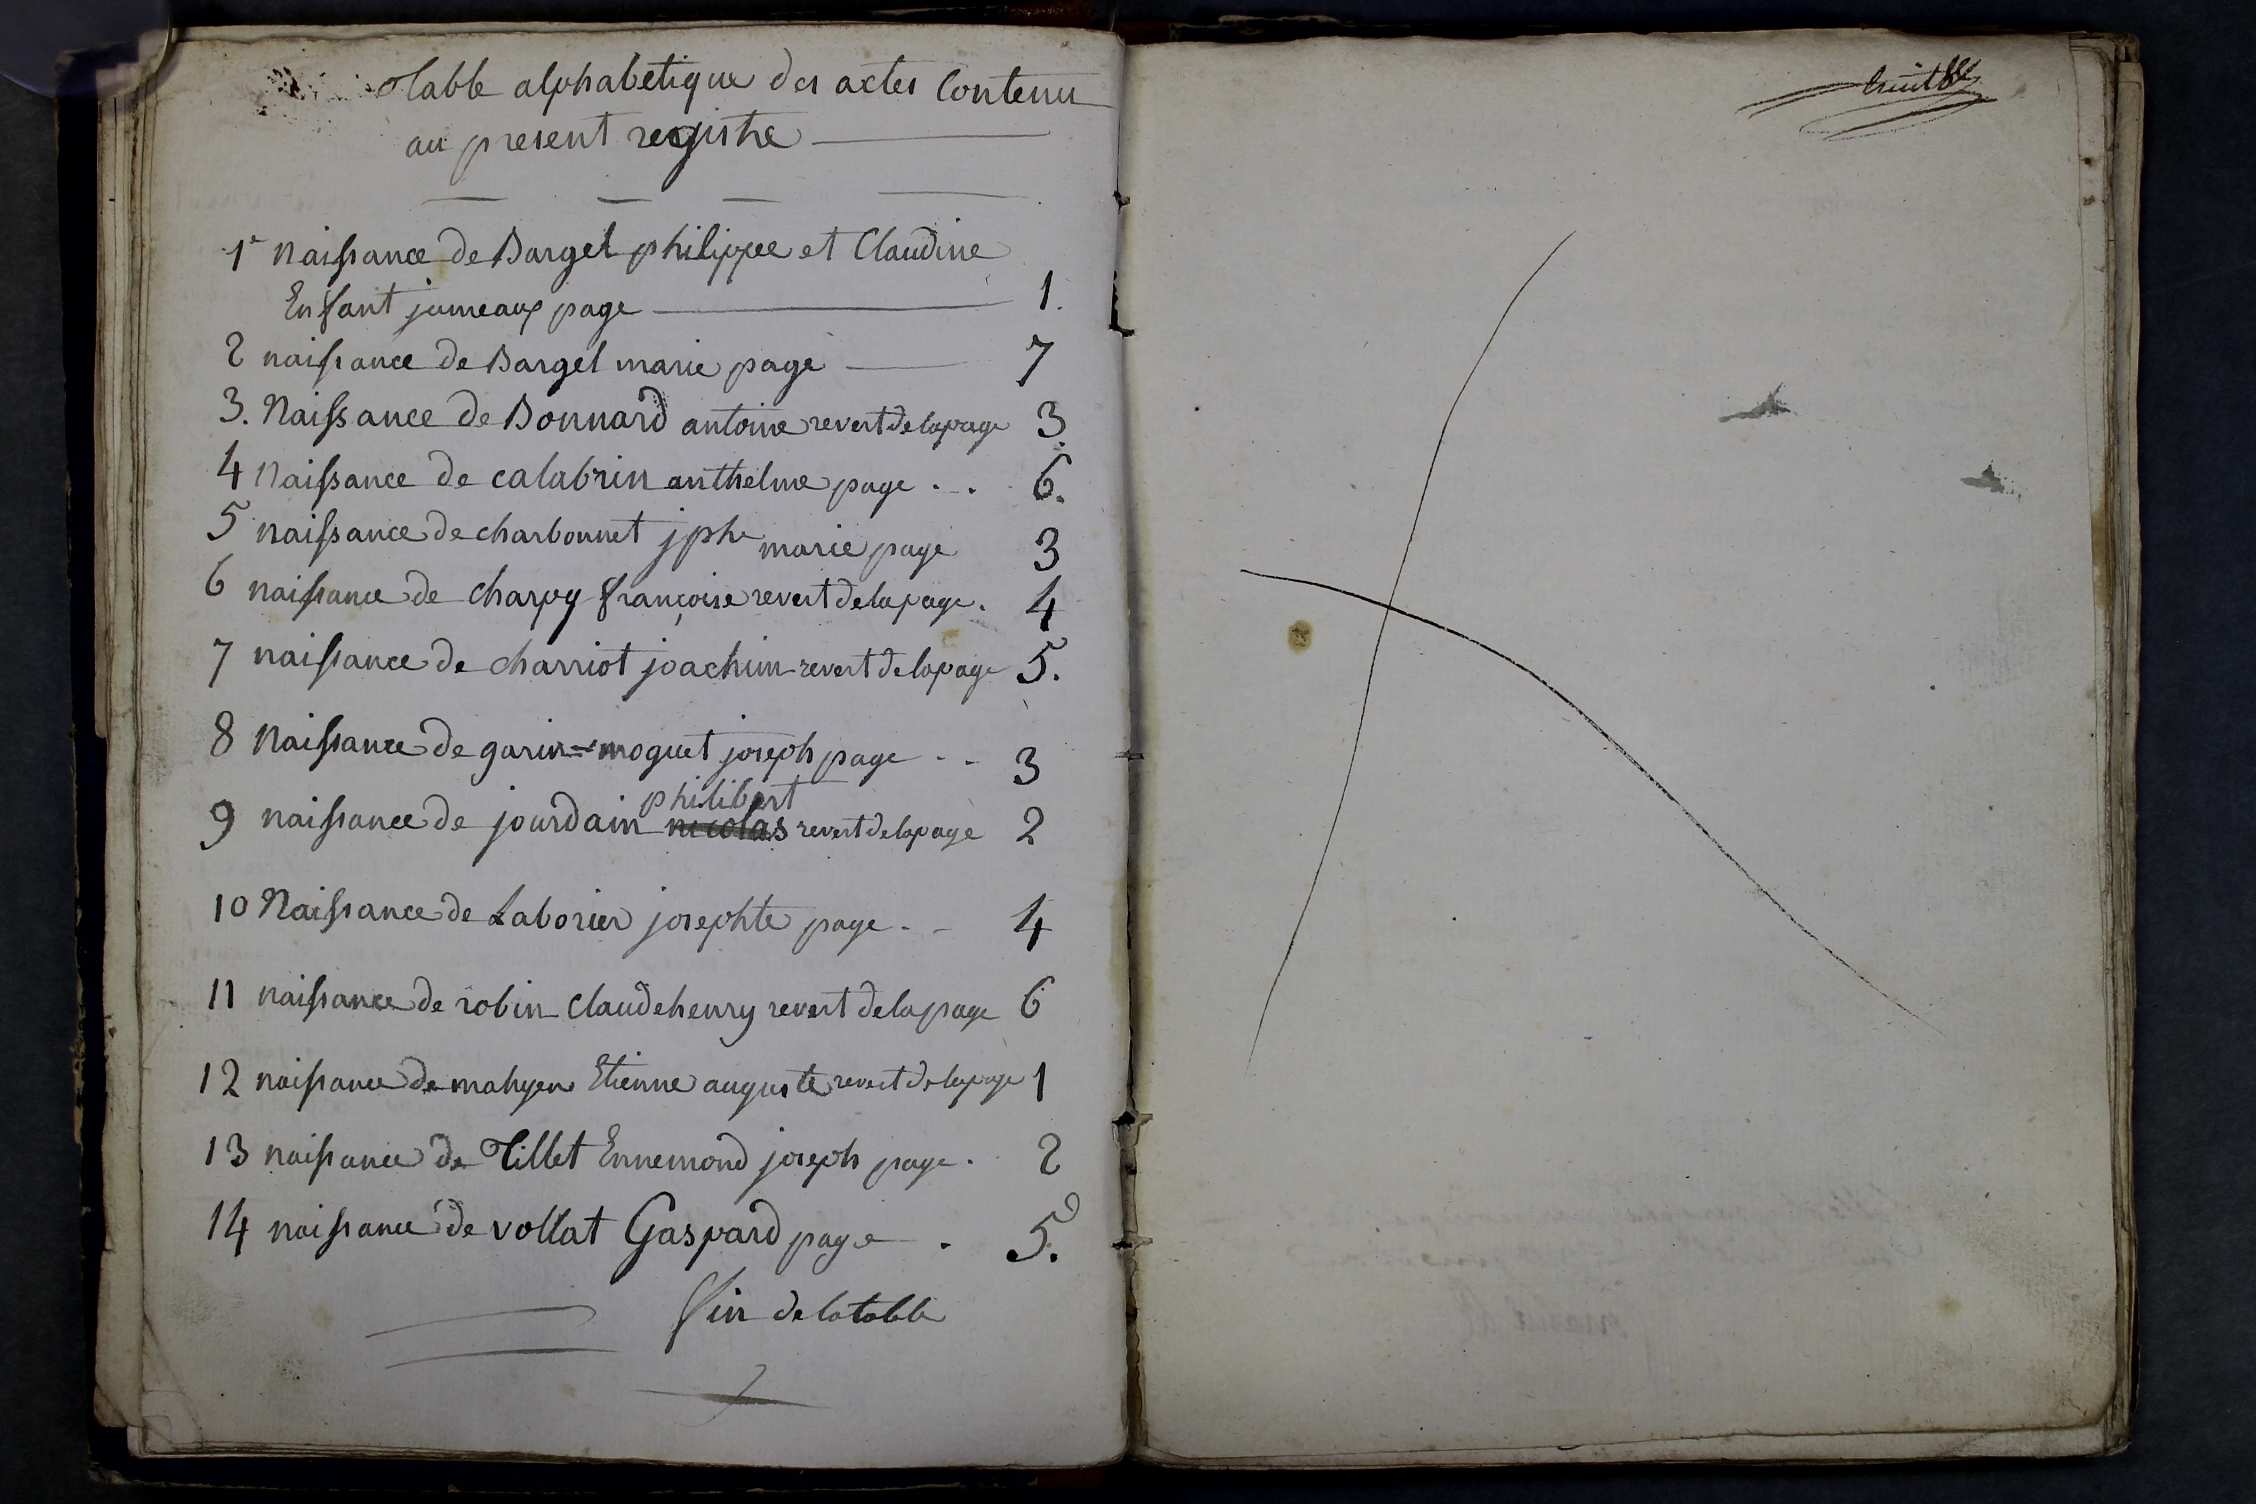 table alphabetique des actes Contenu
au present registre
1r Naissance de Bargel philippe et Claudine
Enfant jumeaux page 1.
2 naissance de Bargel marie page 7
3. Naissance de Bonnard antoine revert de la page 3
4 Naissance de calabrin anthelme page . . 6.
5 naissance de charbonnet jphe marie page 3
6 naissance de charpy françoise revert de la page. 4
7 naissance de charriot joachim revert de la page 5.
8 Naissance de garin=moguet joseph page - - 3
philibert
9 naissance de jourdain nicolas revert de la page 2
10 Naissance de Laborier josephte page . - 4
11 naissance de robin Claude henry revert de la page 6
12 naissance de mahyen Etienne auguste revert de la page 1
13 naissance de Tillet Ennemond joseph page . 2
14 naissance de vollat Gaspard page . 5.
fin de la table
huit